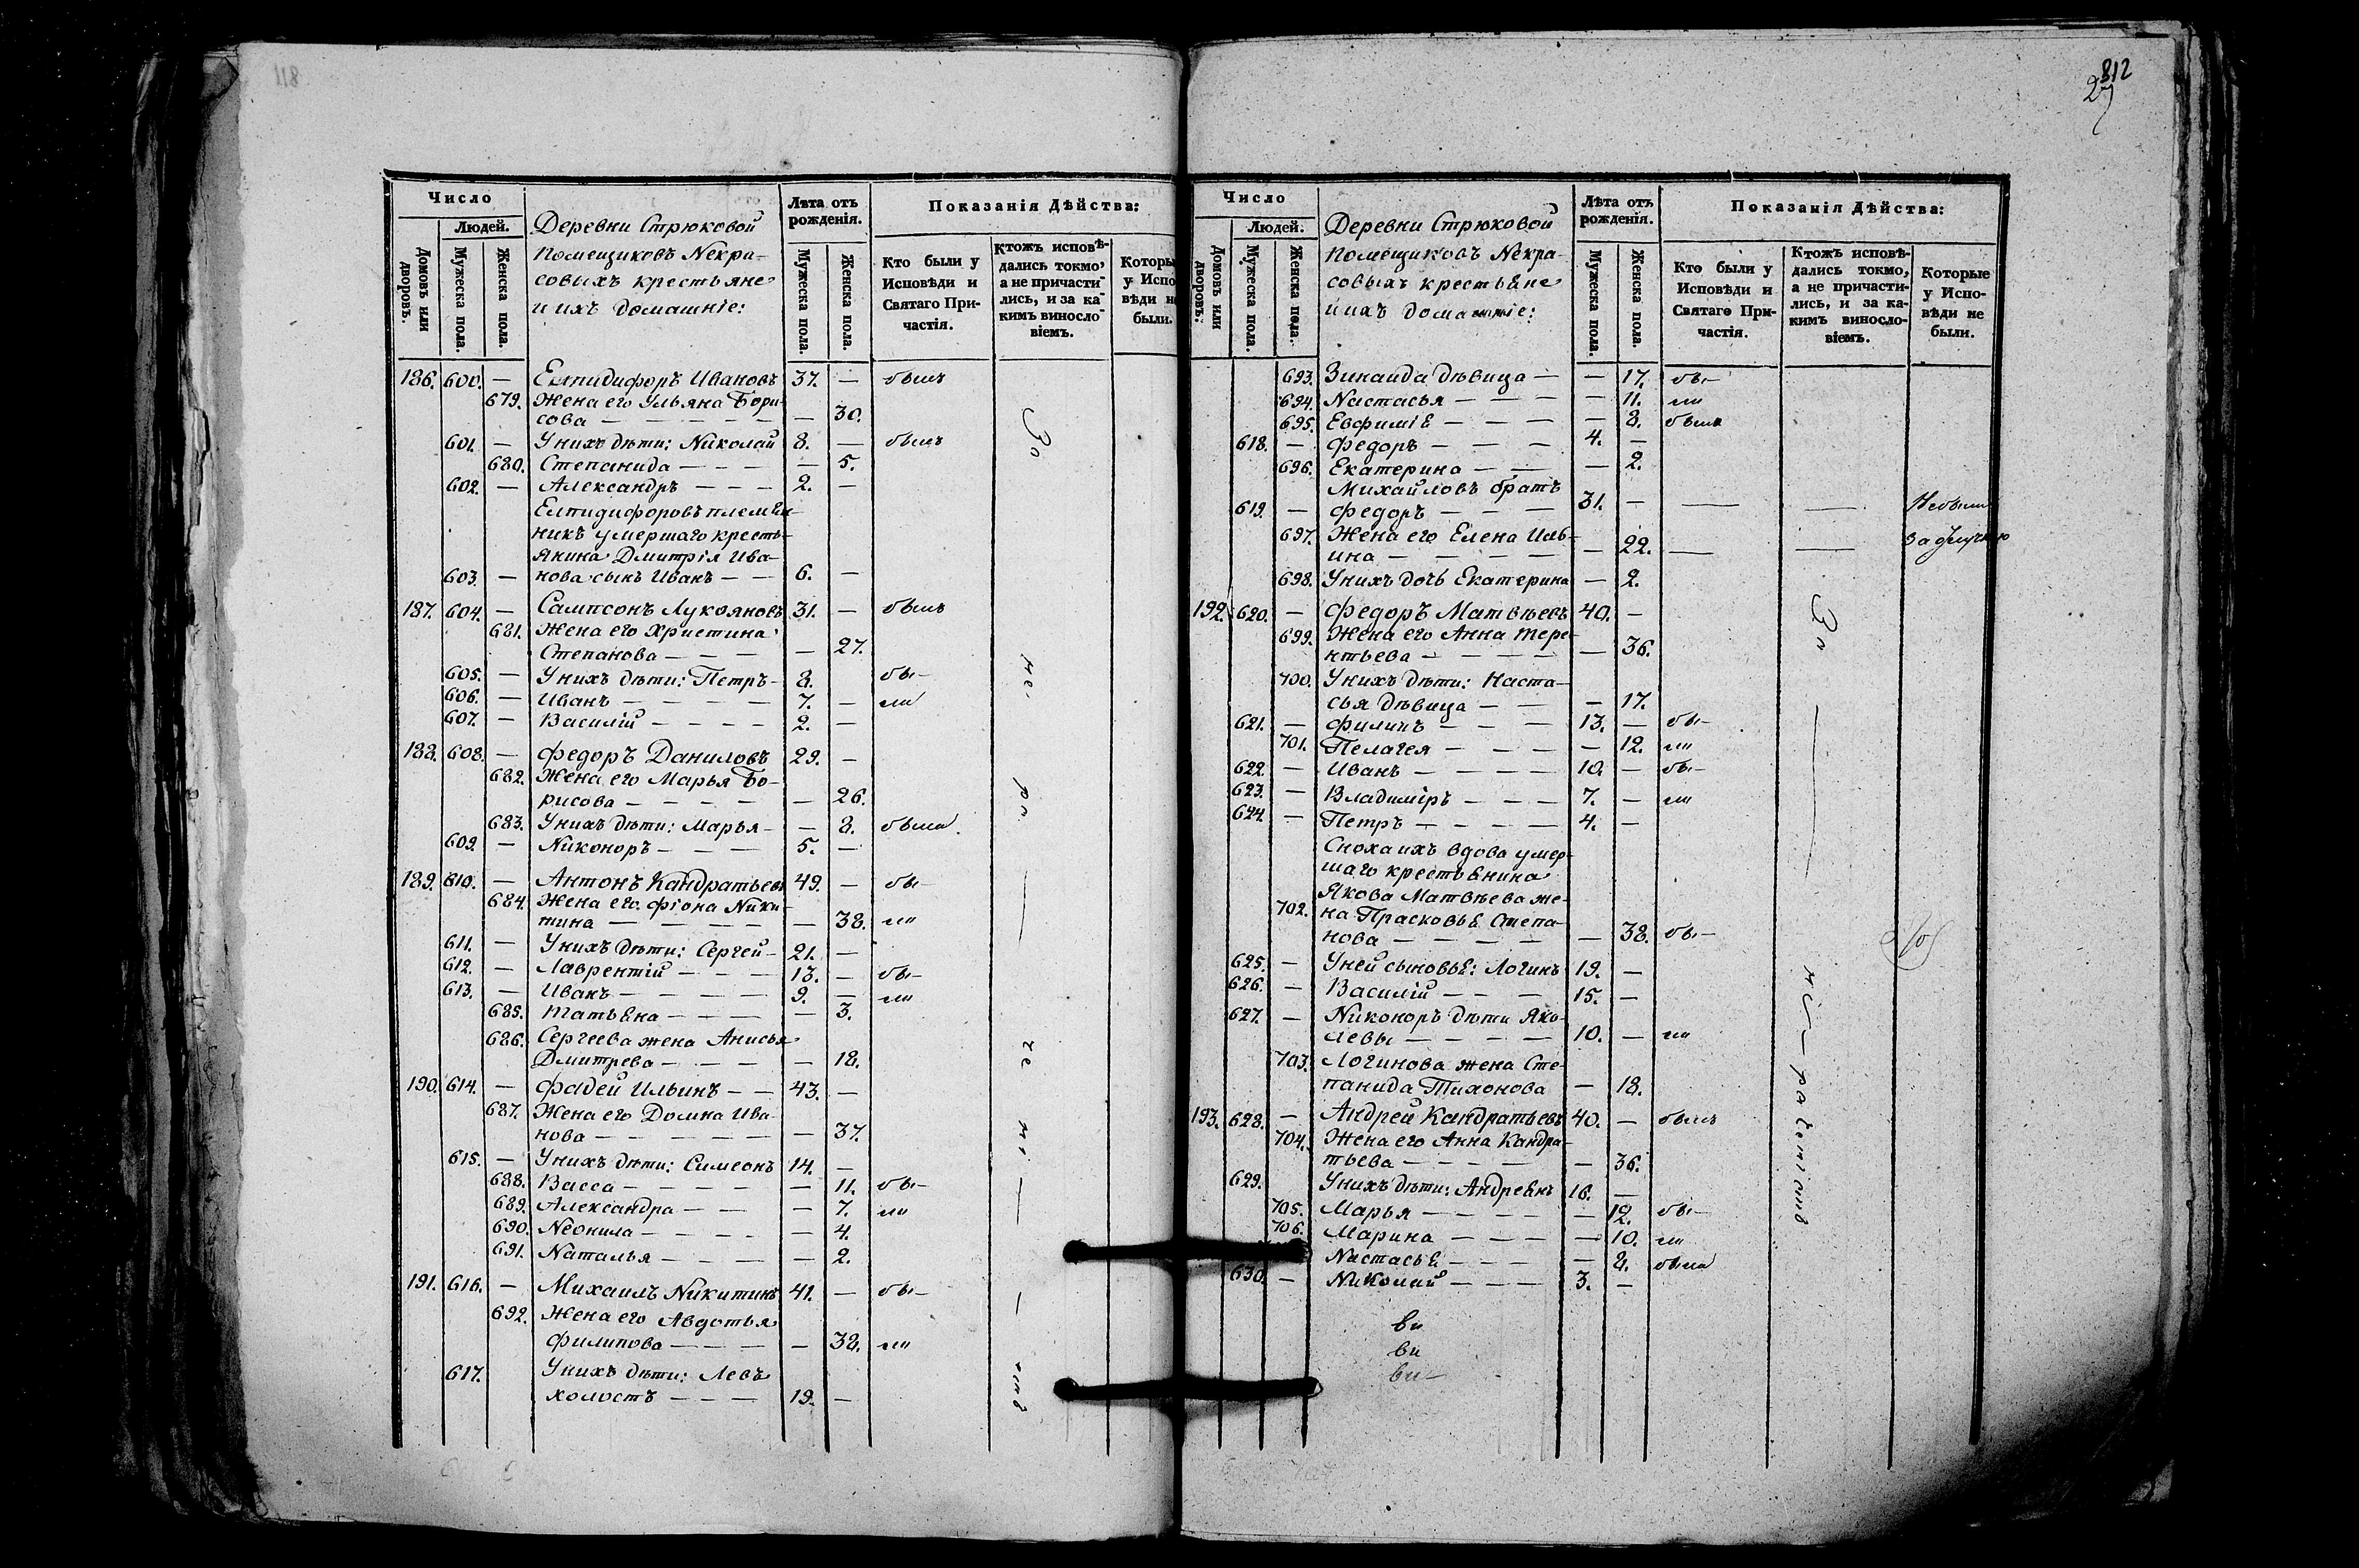 118
Число
Людей.
Домовъ или дворовъ.
Мужеска пола.
Женска пола.
Деревни Стрюковой
помещиковъ Некра-
совыхъ крестьяне
и ихъ домашніе:
Лѣта отъ рожденія.
Мужеска пола.
Женска пола.
Показанія Дѣйства:
Кто были у Исповѣди и Святаго При-частія.
Ктожъ исповѣ-дались токмо, а не причасти-лись, и за ка-кимъ виносло-віемъ.
Которы у Испо вѣди н были.
186. 600. — Елпидифоръ Ивановъ 37. — былъ
679. Жена его Ульяна Бори-
сова — — — — — 30.
601. — У нихъ дѣти: Николай 8. — былъ
680. Степанида — — — — 5.
602. — Александръ — — — 2. —
Елпидифоровъ племян-
никъ умершаго кресть-
янина Дмитрія Ива-
603. — нова сынъ Иванъ — — 6. —
187. 604. — Сампсонъ Лукояновъ 31. — былъ
681. Жена его Христина
Степанова — — — — 27.
605. — У нихъ дѣти: Петръ — 8. бы-
606. — Иванъ — — — — 7. — ли
607. — Василій — — — — 2. —
188. 608. — Федоръ Даниловъ 29. —
682. Жена его Марья Бо-
рисова — — — — — 26.
683. У нихъ дѣти: Марья — — 8. была
609. — Никоноръ — — — 5. —
189. 610. — Антонъ Кандратьевъ 49. — бы-
684. Жена его Фіона Ники-
тина — — — — — 38. ли
611. — У нихъ дѣти: Сергей — 21. —
612. — Лаврентій — — — 13. — бы-
613. — Иванъ — — — — 9. — ли
685. Татьяна — — — — 3.
686. Сергеева жена Анисья
Дмитрева — — — — 18.
190. 614. — Фадей Ильинъ — — 43. —
687. Жена его Домна Ива-
нова — — — — — — 37.
615. — У нихъ дѣти: Симеонъ 14. —
688. Васса — — — — — 11. бы-
689. Александра — — — 7. ли
690. Неонила — — — — — 4.
691. Наталья — — — — — 2.
191. 616. — Михаилъ Никитинъ 41. — бы-
692. Жена его Авдотья
Филипова — — — — 38. ли
617. У нихъ дѣти: Левъ
холостъ — — — 19. —
За не ра — че ні — емъ
812
Число
Людей.
Домовъ или дворовъ.
Мужеска пола.
Женска пола.
Деревни Стрюковой
помещиковъ Некра-
совыхъ крестьяне
и ихъ домашніе:
Лѣта отъ рожденія.
Мужеска пола.
Женска пола.
Показанія Дѣйства:
Кто были у Исповѣди и Святаго При-частія.
Ктожъ исповѣ-дались токмо, а не причасти-лись, и за ка-кимъ виносло-віемъ.
Которые у Испо-вѣди не были.
693. Зинаида дѣвица — — 17. бы-
694. Настасья — — — — 11. ли
695. Евфимія — — — — 8. была
618. — Федоръ — — — 4. —
696. Екатерина — — — 2.
Михайловъ братъ
619. — Федоръ — — — 31. — — — Небыли
697. Жена его Елена Иль-
ина — — — — — 22. — — за отлучкою
698. У нихъ дочь Екатерина — 2.
192. 620. — Федоръ Матвѣевъ 40. —
699. Жена его Анна Тере-
нтьева — — — — — 36.
700. У нихъ дѣти: Наста-
сья дѣвица — — — 17.
621. — Филипъ — — — 13. — бы-
701. Пелагея — — — — 12. ли
622. — Иванъ — — — — 10. — бы-
623. — Владиміръ — — — 7. — ли
624. — Петръ — — — — 4. —
Сноха ихъ вдова умер-
шаго крестьянина
Якова Матвѣева же-
702. на Прасковья Степа-
нова — — — — — 38. бы-
625. — У ней сыновья: Логинъ 19. —
626. — Василій — — — 15. —
627. — Никоноръ дѣти Яко-
левы — — — — 10. — ли
703. Логинова жена Сте-
панида Тихонова — 18.
193. 628. — Андрей Кандратьевъ 40. — былъ
704. Жена его Анна Кандра-
тьева — — — — — 36.
629. У нихъ дѣти: Андреянъ 16. —
705. Марья — — — — — 12. бы-
706. Марина — — — — 10. ли
Настасья — — — — 8. была
630. — Николай — — — 3. —
За — не — раченіемъ